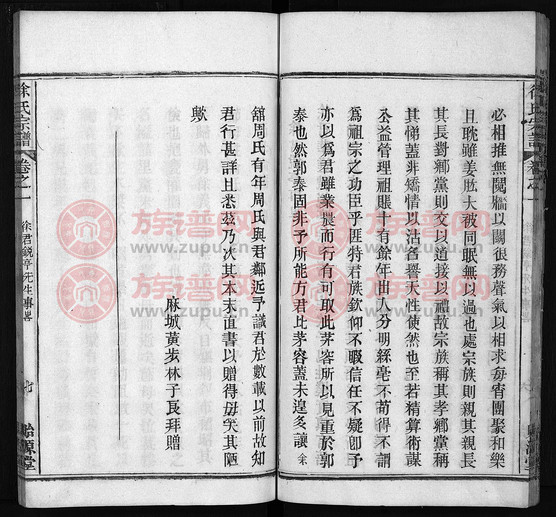 必相推無鬩牆以關很務聲氣以相求每宵團聚和樂
且耽雖姜肱大被同眠無以過也處宗族則親其親長
其長對鄉黨則交以道接以禮故宗族稱其孝鄉黨稱
其悌蓋非矯情以沽名譽天性使然也至若精算術謀
公益管理祖賬十有餘年出入分明絲毫不苟得不謂
爲祖宗之功臣乎匪特君族欽仰不暇信任不疑卽予
亦以爲君雖業農而行有可取此茅容所以見重於郭
泰也然郭泰固非予所能方君比茅容蓋未遑多讓 余
館周氏有年周氏與君鄰近予識君於數載以前故知
君行甚詳且悉茲乃次其本末直書以贈得毋笑其陋
歟
麻城黃步林子良拜贈
徐氏宗譜
卷之一
徐君銳亭先生事畧
七
貽源堂
徐氏宗譜
卷之一
貽源堂
族谱网
www.zupu.cn
族谱网
www.zupu.cn
族谱网
www.zupu.cn
族谱网
www.zupu.cn